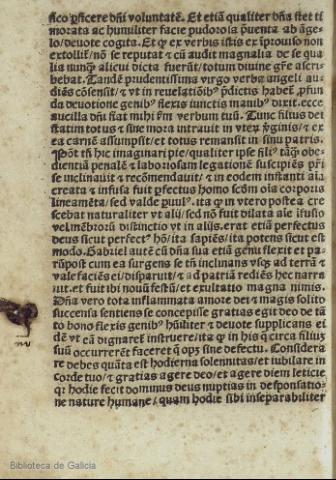 fico ꝑficere dñi voluntatē. Et etiā qualiter dña stet ti
morata ac humiliter facie pudorosa p̄uenta ab āge-
lo/deuote cogita. Et ꝙ ex verbis istis ex iprouiso non
extollit̄/nō se reputat ⁊ cū audit magnalia de se qua
lia nunq̄ alicui dicta fuerūt/totum diuine gr̄e ascri-
bebat. Tandē prudentissima virgo verbis angeli au-
diēs cōsensit/⁊ vt in reuelatiōib⁹ p̄dictis habet̄/p̄fun
da deuotione genib⁹ flexis iunctis manib⁹ dixit. ecce
ancilla dñi fiat mihi ẜm verbum tuū. Tunc filius dei
statim totus ⁊ sine mora intrauit in vtex v̓ginis/⁊ ex
ea carnē assumpsit/et totus remansit in sinu patris.
Pōt tñ hic imaginari pie/qualiter ipse fili⁹ tāꝙ obe-
dientiā penalē ⁊ laboriosam legationē suscipiēs pr̄i
se inclinauit ⁊ recōmendauit/⁊ in eodem instanti aīa
creata ⁊ infusa fuit ꝑfectus homo scd̄m oīa corporis
lineamēta/sed valde puul⁹. ita ꝙ in vtero postea cre
scebat naturaliter vt alij/sed nō fuit dilata aīe ifusio
vel mēbroꝝ distinctio vt in alijs. erat etiā perfectus
deus sicut perfect⁹ hō/ita sapiēs/ita potens sicut est
modo. Gabriel autē cū dña sua etiā genu flexit et pa-
rūpost cum ea surgens se tñ inclinans vsq̄ ad terrā ⁊
vale faciēs ei/disparuit/⁊ ad patriā rediēs hec narra
uit. et fuit ibi nouū festū/et exultatio magna nimis.
Dña vero tota inflammata amore dei ⁊ magis solito
succensa sentiens se concepisse gratias egit deo de tā
to bono flexis genib⁹ hūiliter ⁊ deuote supplicans ei
dē vt eā dignaret̄ instruere/ita ꝙ in his q̄ circa filiuȝ
suū occurrerēt faceret q̄ opꝫ sine defectu. Considera
re debes quāta est hodierna solennitas/et iubilare in
corde tuo/⁊ gratias agere deo/et agere diem leticie
q: hodie fecit dominus deus nuptias in desponsatio-
ne nature humane/quam hodie sibi inseparabiliter
Biblioteca de Galicia